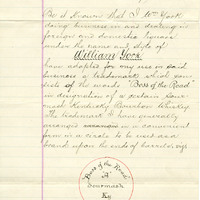 Be it Known that I Wm York
doing business in and dealing in
foreign and domestic liquors
under the name and style of
William York
have adopted for my use in said
business a trademark which con-
sists of the words "Boss of the Road"
in designation of a certain Sour
mash Kentucky Bourbon Whiskey.
The trademark I have generally
arranged in a
form in a circle to be used and
bound upon the ends of barrels viz
"Boss of the Road"
Sourmash
Ky